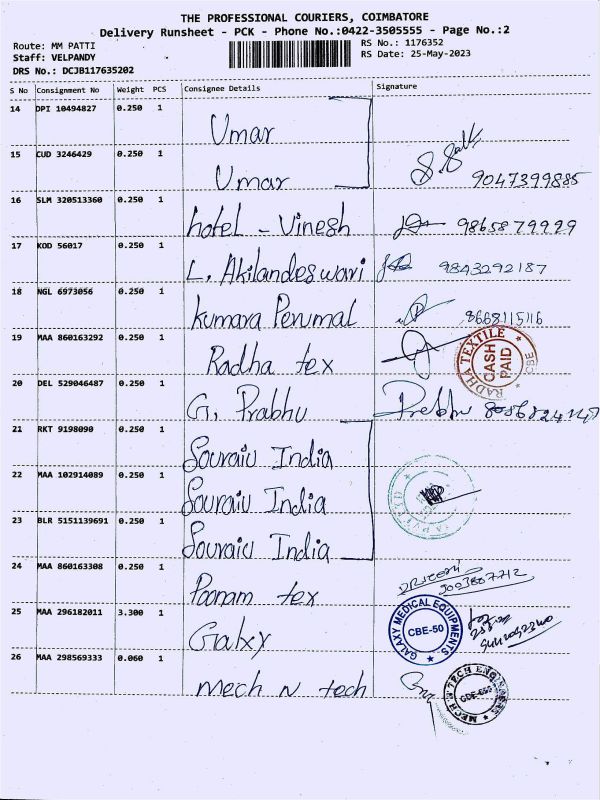 THE PROFESSIONAL COURIERS, COIMBATORE
Delivery Runsheet - PCK - Phone No.:0422-3505555 - Page No.:2
Route: MM PATTI
RS No.: 1176352
Staff: VELPANDY
RS Date: 25-May-2023
DRS No.: DCJB117635202
S No Consignment No Weight PCS Consignee Details Signature
14 DPI 10494827 0.250 1 Umar
15 CUD 3246429 0.250 1 Umar 9047399885
16 SLM 320513360 0.250 1 hotel - Vinesh 9865879929
17 KOD 56017 0.250 1 L. Akilandeswari 9843292187
18 NGL 6973056 0.250 1 Kumara Perumal 8668115116
19 MAA 860163292 0.250 1 Radha tex RADHA TEXTILE CASH PAID CBE
20 DEL 529046487 0.250 1 G. Prabhu Prebhu
21 RKT 9198090 0.250 1 Souraiu India
22 MAA 102914089 0.250 1 Souraiu India
23 BLR 5151139691 0.250 1 Souraiu India
24 MAA 860163308 0.250 1 Poonam tex
25 MAA 296182011 3.300 1 Galxy GALAXY MEDICAL EQUIPMENTS CBE-50
26 MAA 298569333 0.060 1 Mech N tech MECH N TECH ENGINEERS